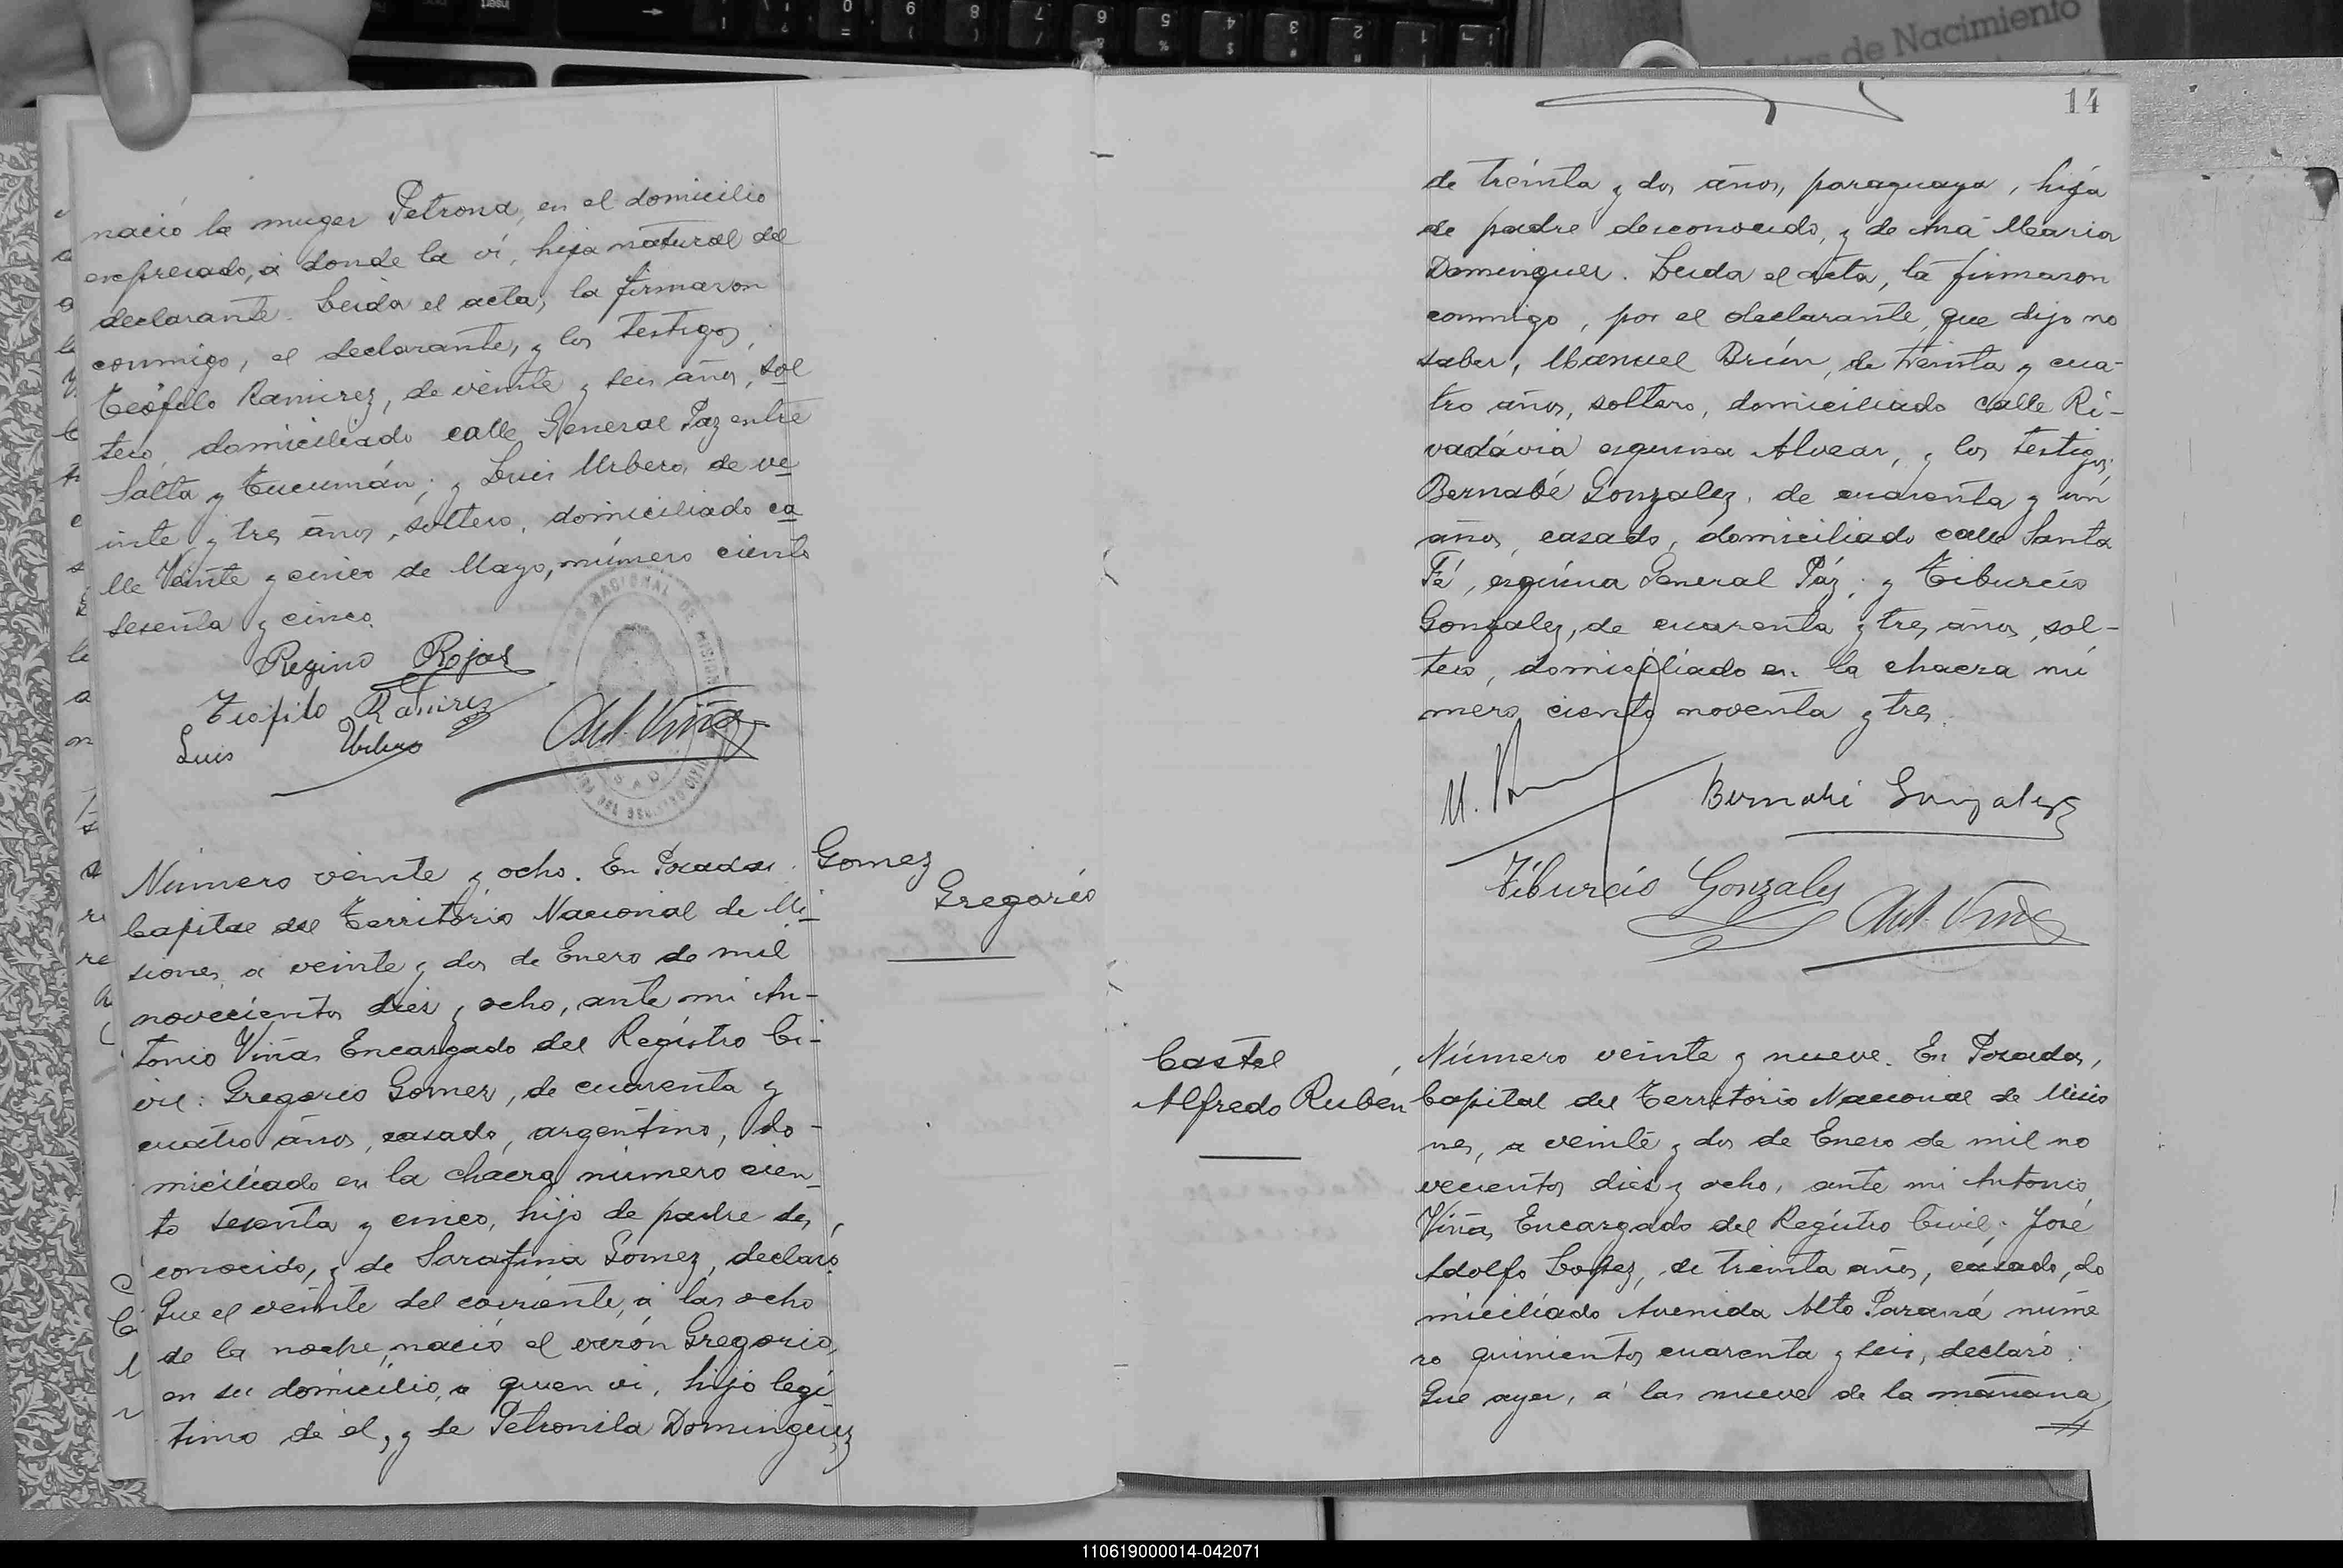 nació la muger Petrona, en el domicilio
expresado, á donde la ví, hija natural del
declarante. Leida el acta, la firmaron
conmigo, el declarante, y los testigos,
Teófilo Ramirez, de veinte y seis años, sol
tero, domiciliado calle General Paz entre
Salta y Tucumán; y Luis Urbero, de ve
inte y tres años, soltero, domiciliado ca
lle Veinte y cinco de Mayo, número ciento
sesenta y cinco.
Regino Rojas
Teofilo Ramirez
Luis Urbero
Ant. Viña
Número veinte y ocho. En Posadas
Capital del Territorio Nacional de Mi-
siones, a veinte y dos de Enero de mil
novecientos dies y ocho, ante mi An-
tonio Viña, Encargado del Registro Ci-
vil: Gregorio Gomez, de cuarenta y
cuatro años, casado, argentino, do-
miciliado en la chácra número cien-
to sesenta y cinco, hijo de padre des
conocido, y de Sarafina Gomez, declaró:
Que el veinte del corriente, á las ocho
de la noche, nació el varón Gregorio,
en su domicilio, a quien vi, hijo legi
timo de él, y de Petronila Dominguez
Gomez
Gregorio
14
de treinta y dos años, paraguaya, hija
de padre desconocido, y de Ana Maria
Dominguez. Leida el acta, la firmaron
conmigo, por el declarante, que dijo no
saber, Manuel Brún, de treinta y cua-
tro años, soltero, domiciliado calle Ri-
vadávia esquina Alvear, y los testigos:
Bernabé Gonzalez, de cuarenta y un
años, casado, domiciliado calle Santa
Fé, esquina General Páz; y Tiburcio
Gonzalez, de cuarenta y tres años, sol-
tero, domiciliado en la chacra nú
mero ciento noventa y tres.
Bernabé Gonzalez
Tiburcio Gonzales
Ant. Viña
Castel
Alfredo Rubén
Número veinte y nueve. En Posadas,
Capital del Territorio Nacional de Misio
nes, a veinte y dos de Enero de mil no
vecientos dies y ocho, ante mi Antonio
Viña, Encargado del Registro Civil; José
Adolfo Lopez, de treinta años, casado, do
miciliado Avenida Alto Paraná núme
ro quinientos cuarenta y seis, declaró:
Que ayer, á las nueve de la mañana,
110619000014-042071